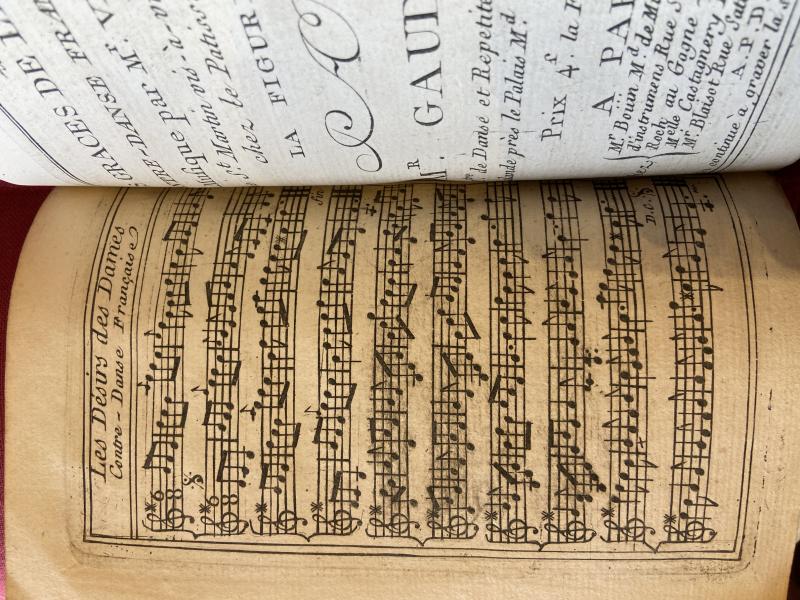 GRACES DE L
TRE-DANSE FRAN
usique Par Mr. V
St Martin vis-à-vis
chez le Patis
LA FIGUR
Mr. GAUD
de Danse et Repetite
près le Palais Md
Prix 4f. la F
A PAR
Mr Bouin Md de Mu
d'instrumens Rue S
Roch
Melle Castagnery
Mr Blaisot Rue Sat
A.P.D.
continue à graver la
Les Désirs des Dames
Contre-Danse Française
6 8
6 8
fin
D.C.